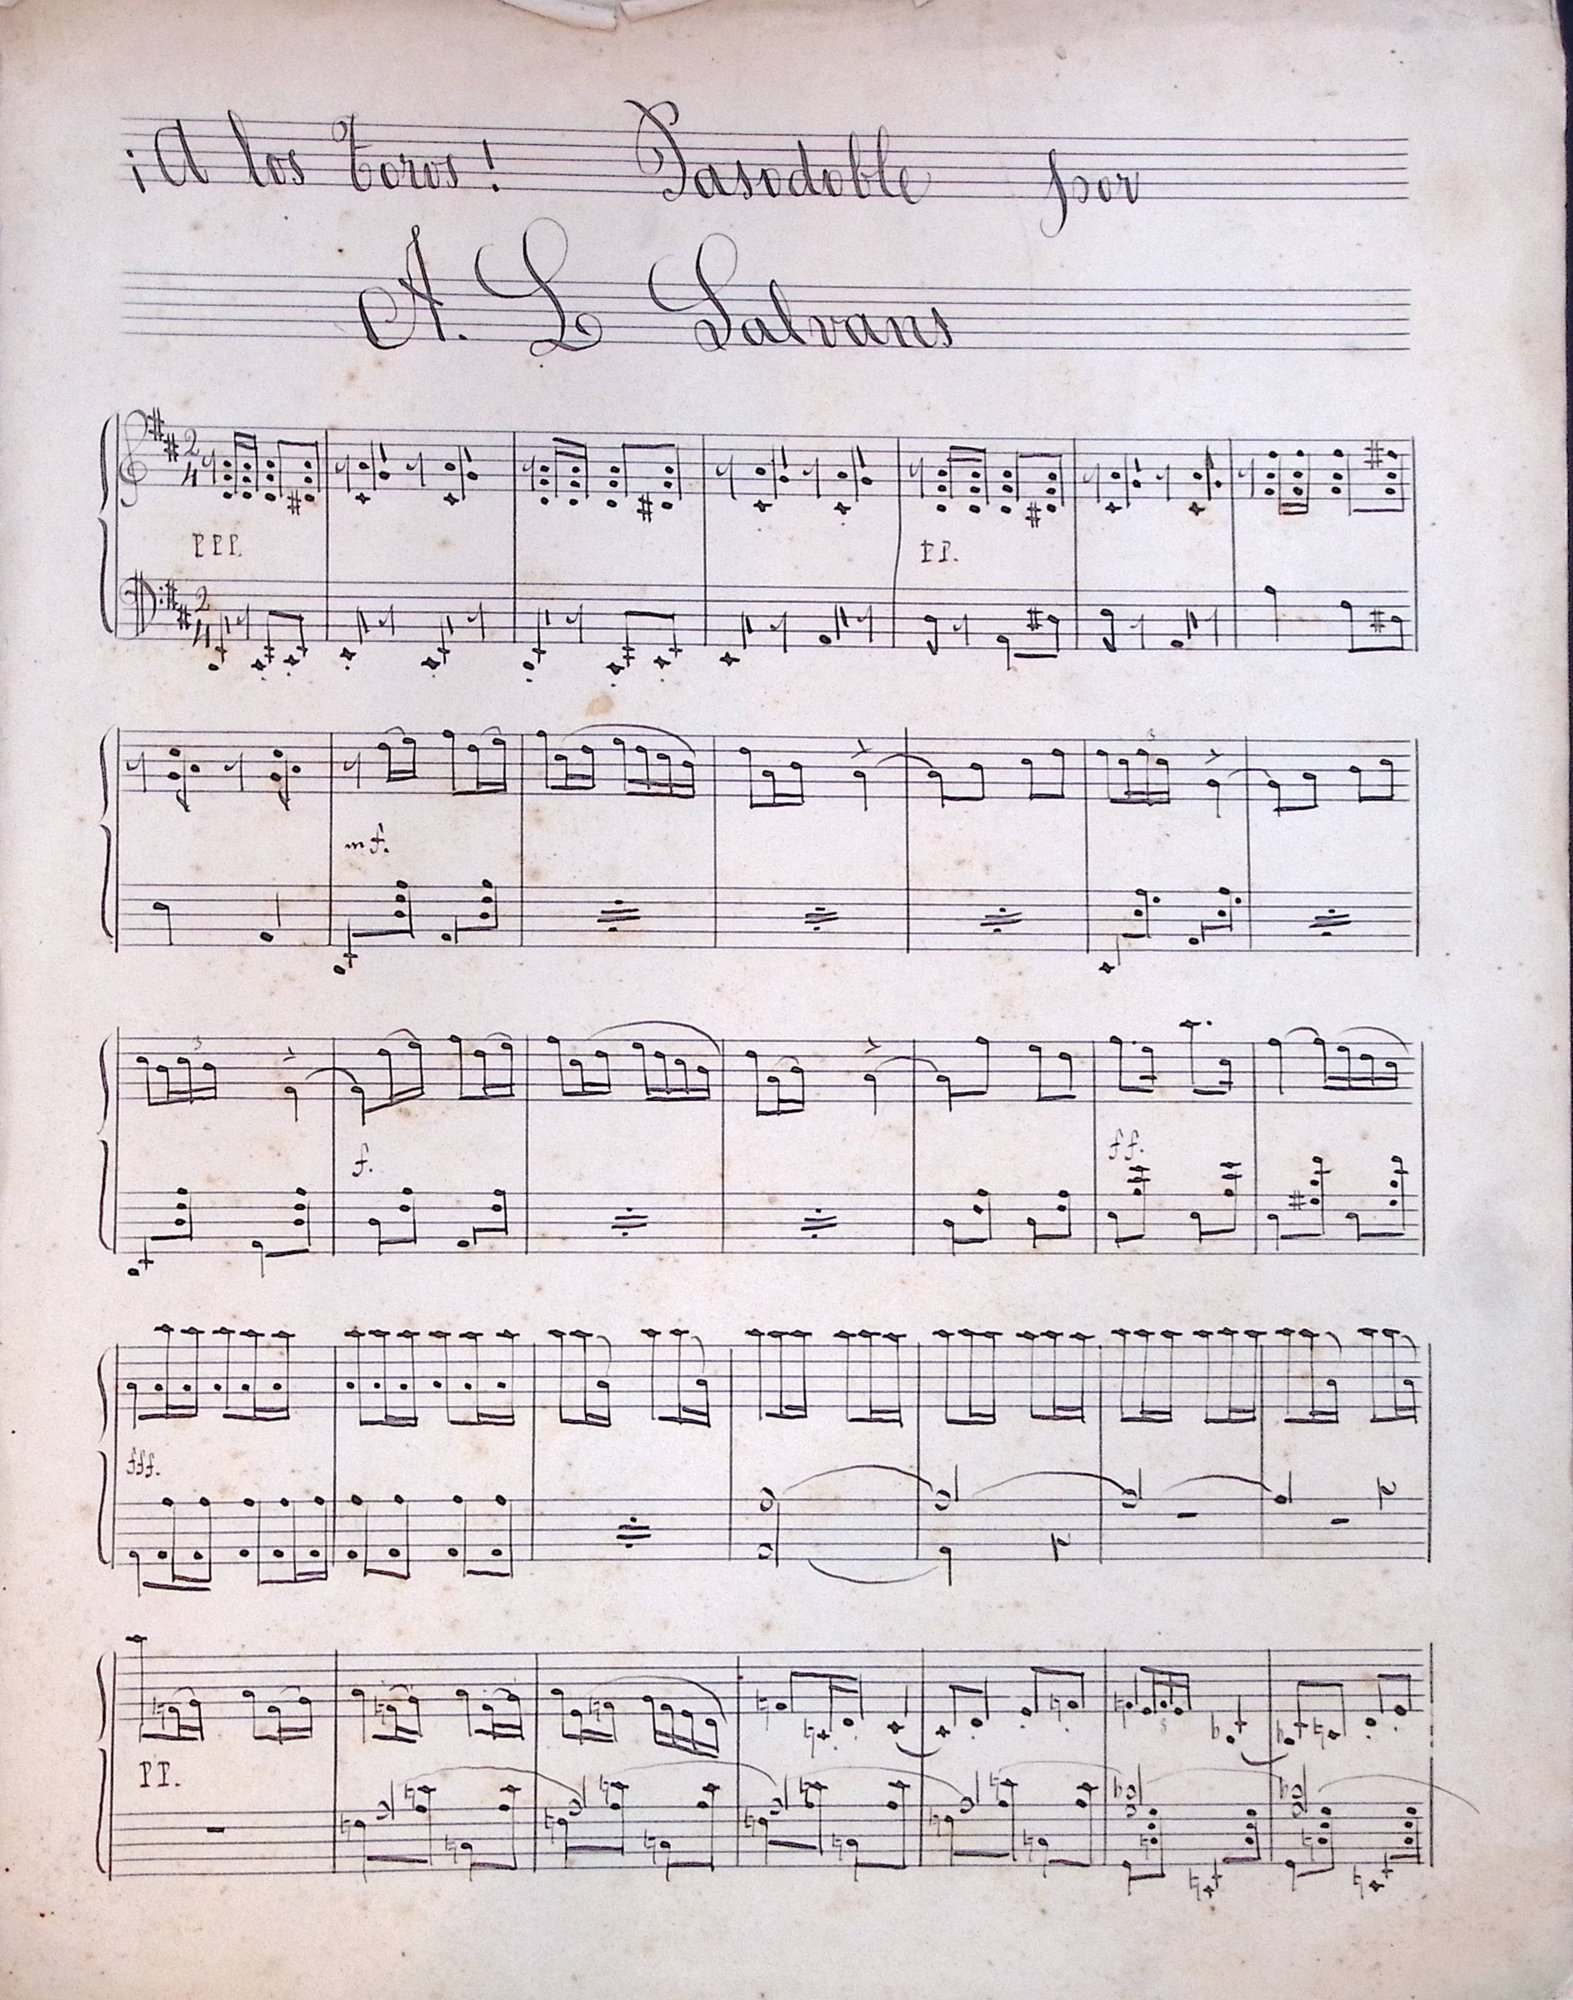 ¡A los toros! Pasodoble por
A. L Salvans
2
4
PPP.
PP.
2
4
3
mf.
3
f.
ff.
fff.
PP.
3